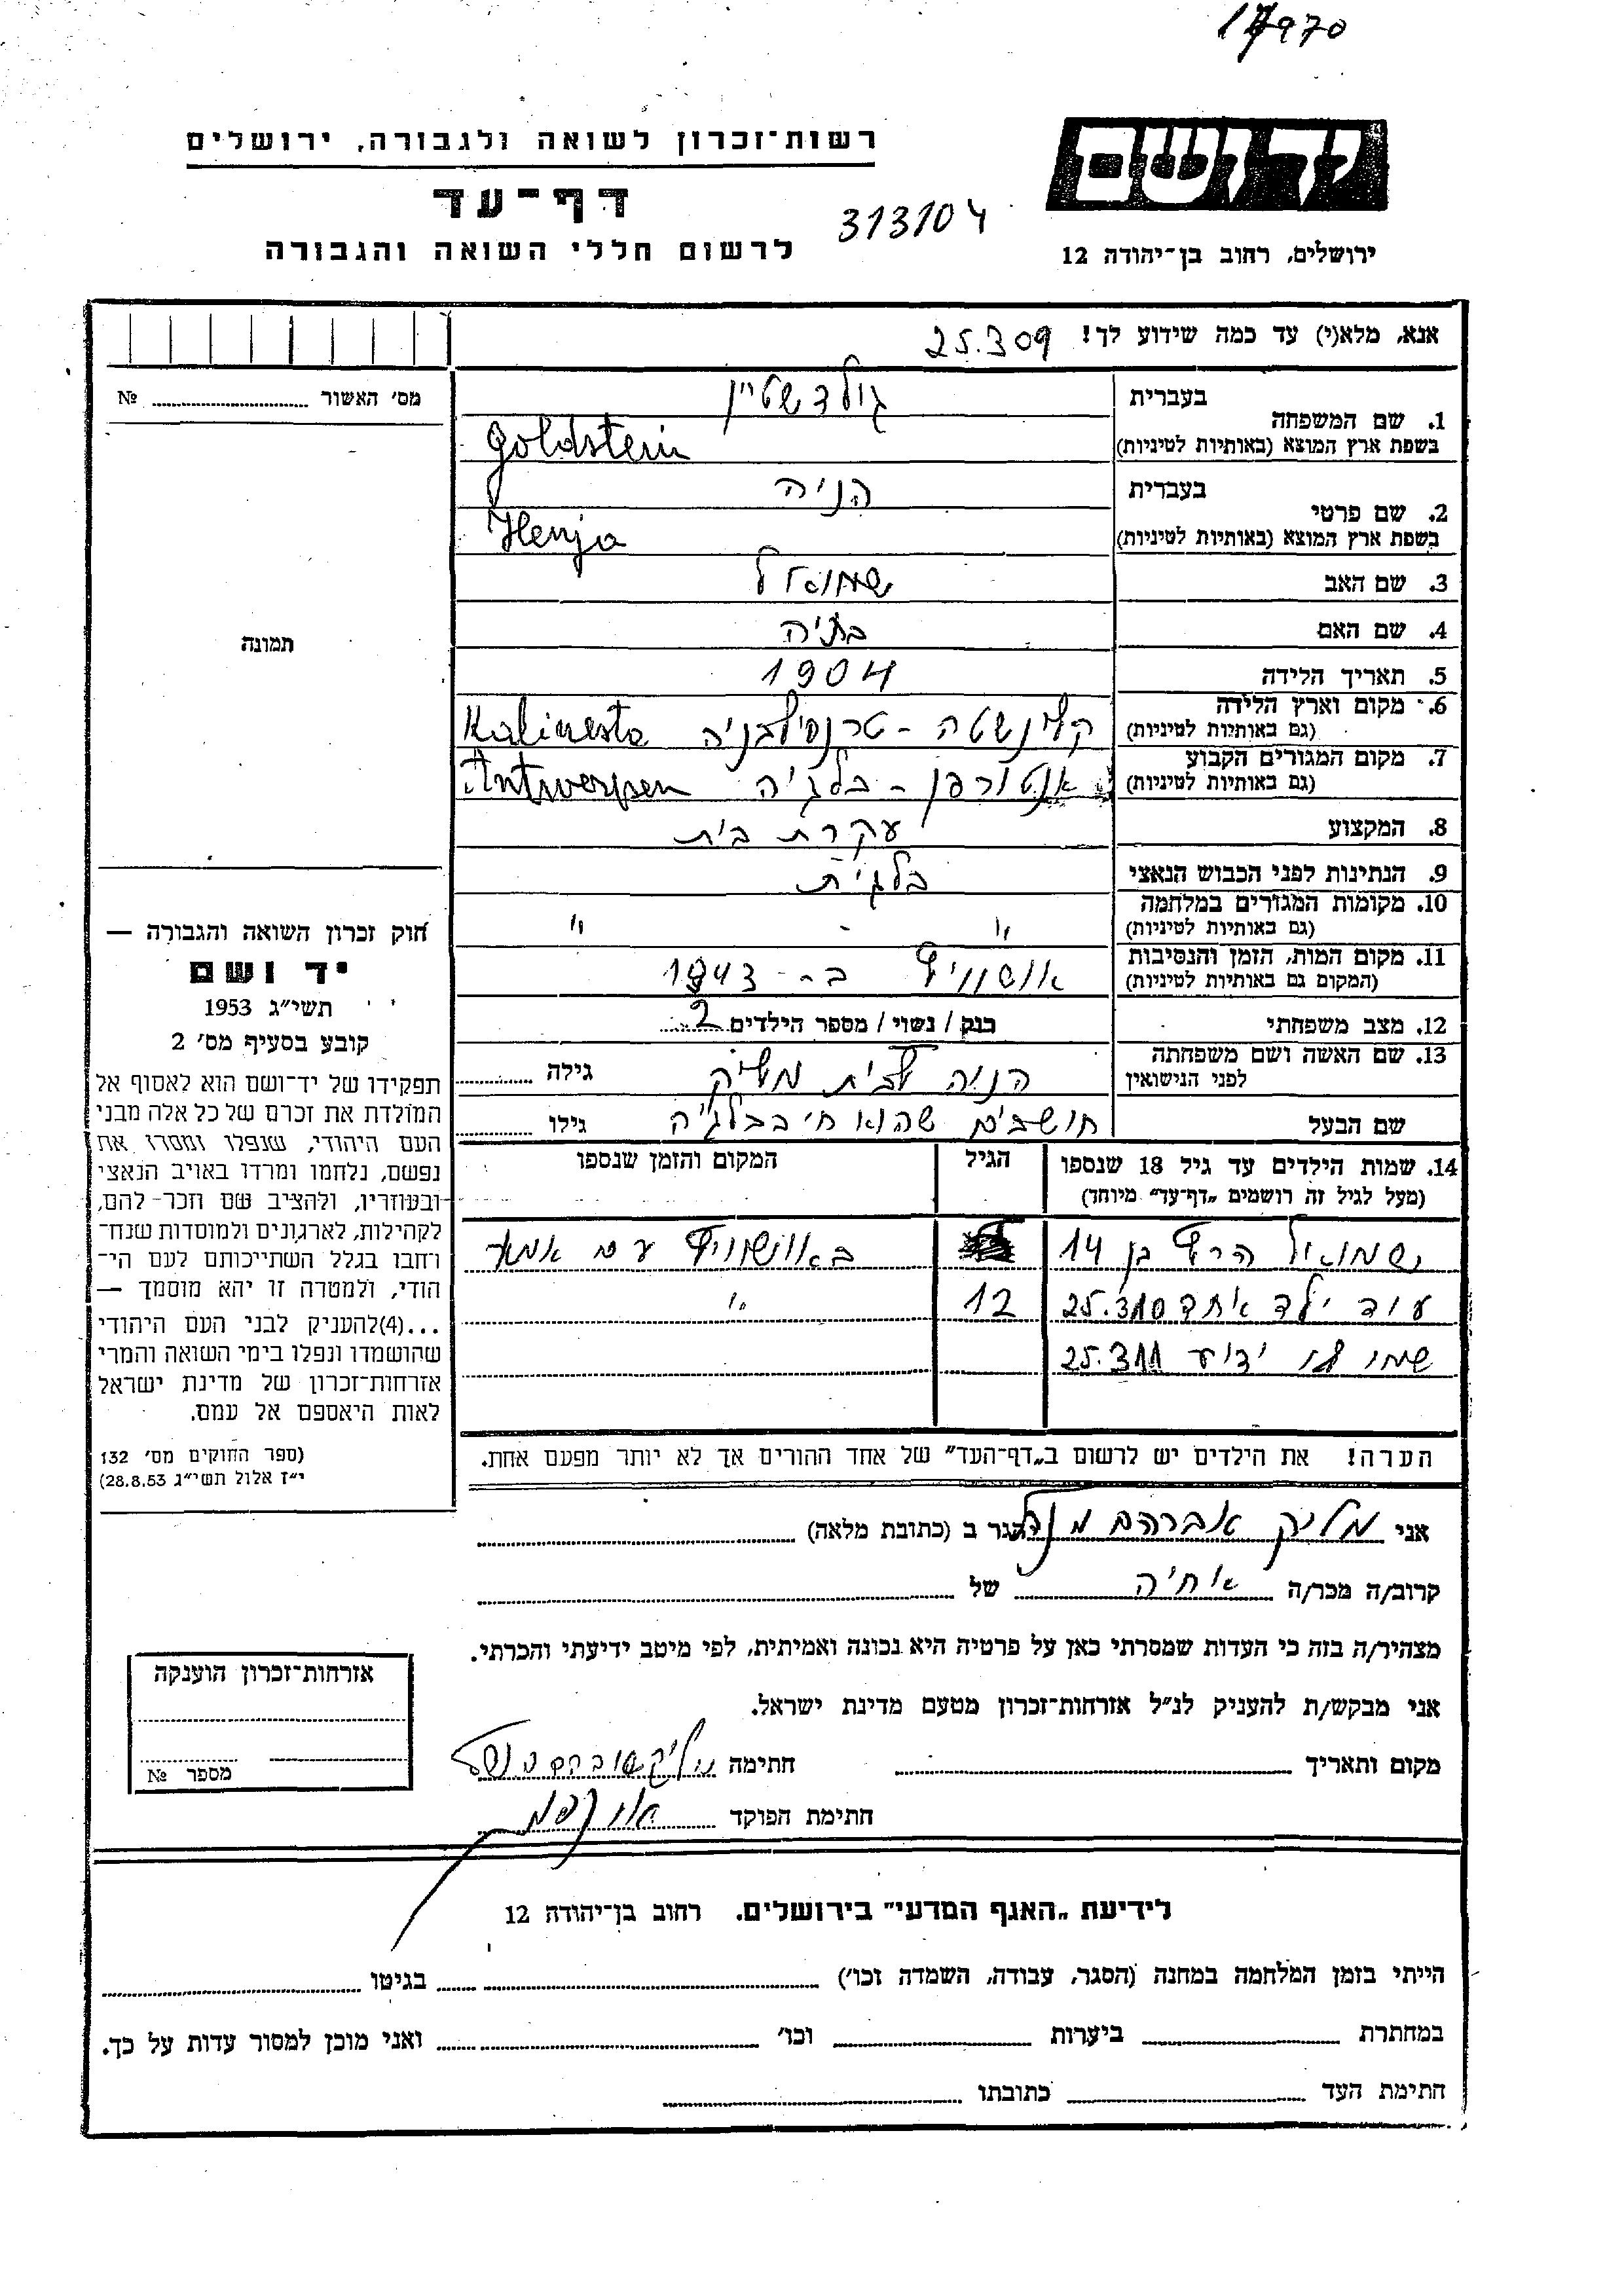 17970
רשות־זכרון לשואה ולגבורה, ירושלים
דף־עד
לרשום חללי השואה והגבורה
313104
יד ושם
ירושלים, רחוב בן־יהודה 12
אנא, מלא(י) עד כמה שידוע לך! 25.309
מס׳ האשור № 
1. שם המשפחה
בעברית גולדשטיין
בשפת ארץ המוצא (באותיות לטיניות) Goldstein
2. שם פרטי
בעברית הניה
בשפת ארץ המוצא (באותיות לטיניות) Henja
3. שם האב שמואל
4. שם האם בתיה
5. תאריך הלידה 1904
6. מקום וארץ הלידה
(גם באותיות לטיניות) קלינשטה - טרנסילבניה Kalinesta
7. מקום המגורים הקבוע
(גם באותיות לטיניות) אנטורפן - בלגיה Antwerpen
8. המקצוע עקרת בית
9. הנתינות לפני הכבוש הנאצי בלגית
10. מקומות המגורים במלחמה
(גם באותיות לטיניות) " - "
11. מקום המות, הזמן והנסיבות
(המקום גם באותיות לטיניות) אושוויץ ב- 1943
12. מצב משפחתי רוק / נשוי / מספר הילדים 2
13. שם האשה ושם משפחתה
לפני הנישואין הניה לבית מליק גילה
שם הבעל חושבים שהוא חי בבלגיה גילו
תמונה
חוק זכרון השואה והגבורה —
יד ושם
תשי״ג 1953
קובע בסעיף מס׳ 2
תפקידו של יד־ושם הוא לאסוף אל
המולדת את זכרם של כל אלה מבני
העם היהודי, שנפלו ומסרו את
נפשם, נלחמו ומרדו באויב הנאצי
ובעוזריו, ולהציב שם וזכר־להם,
לקהילות, לארגונים ולמוסדות שנח־
רחבו בגלל השתייכותם לעם הי־
הודי, ולמטרה זו יהא מוסמך —
...(4)להעניק לבני העם היהודי
שהושמדו ונפלו בימי השואה והמרי
אזרחות־זכרון של מדינת ישראל
לאות היאספם אל עמם.
(ספר החוקים מס׳ 132
י״ז אלול תשי״ג 28.8.53)
14. שמות הילדים עד גיל 18 שנספו
(מעל לגיל זה רושמים „דף־עד״ מיוחד)
הגיל
המקום והזמן שנספו
שמואל הרץ בן 14 באושוויץ עם אמו
עוד ילד אחד 25.310 12 "
שמו לא ידוע 25.311
הערה! את הילדים יש לרשום ב„דף־העד״ של אחד ההורים אך לא יותר מפעם אחת.
אני מליק אברהם מנדל הגר ב (כתובת מלאה)
קרוב/ה מכר/ה אחיה של
מצהיר/ה בזה כי העדות שמסרתי כאן על פרטיה היא נכונה ואמיתית, לפי מיטב ידיעתי והכרתי.
אני מבקש/ת להעניק לנ״ל אזרחות־זכרון מטעם מדינת ישראל.
מקום ותאריך חתימה מליק אברהם מנדל
חתימת הפוקד
אזרחות־זכרון הוענקה
מספר №
לידיעת „האגף המדעי״ בירושלים. רחוב בן־יהודה 12
הייתי בזמן המלחמה במחנה (הסגר, עבודה, השמדה וכו׳) בגיטו
במחתרת ביערות וכו׳ ואני מוכן למסור עדות על כך.
חתימת העד כתובתו